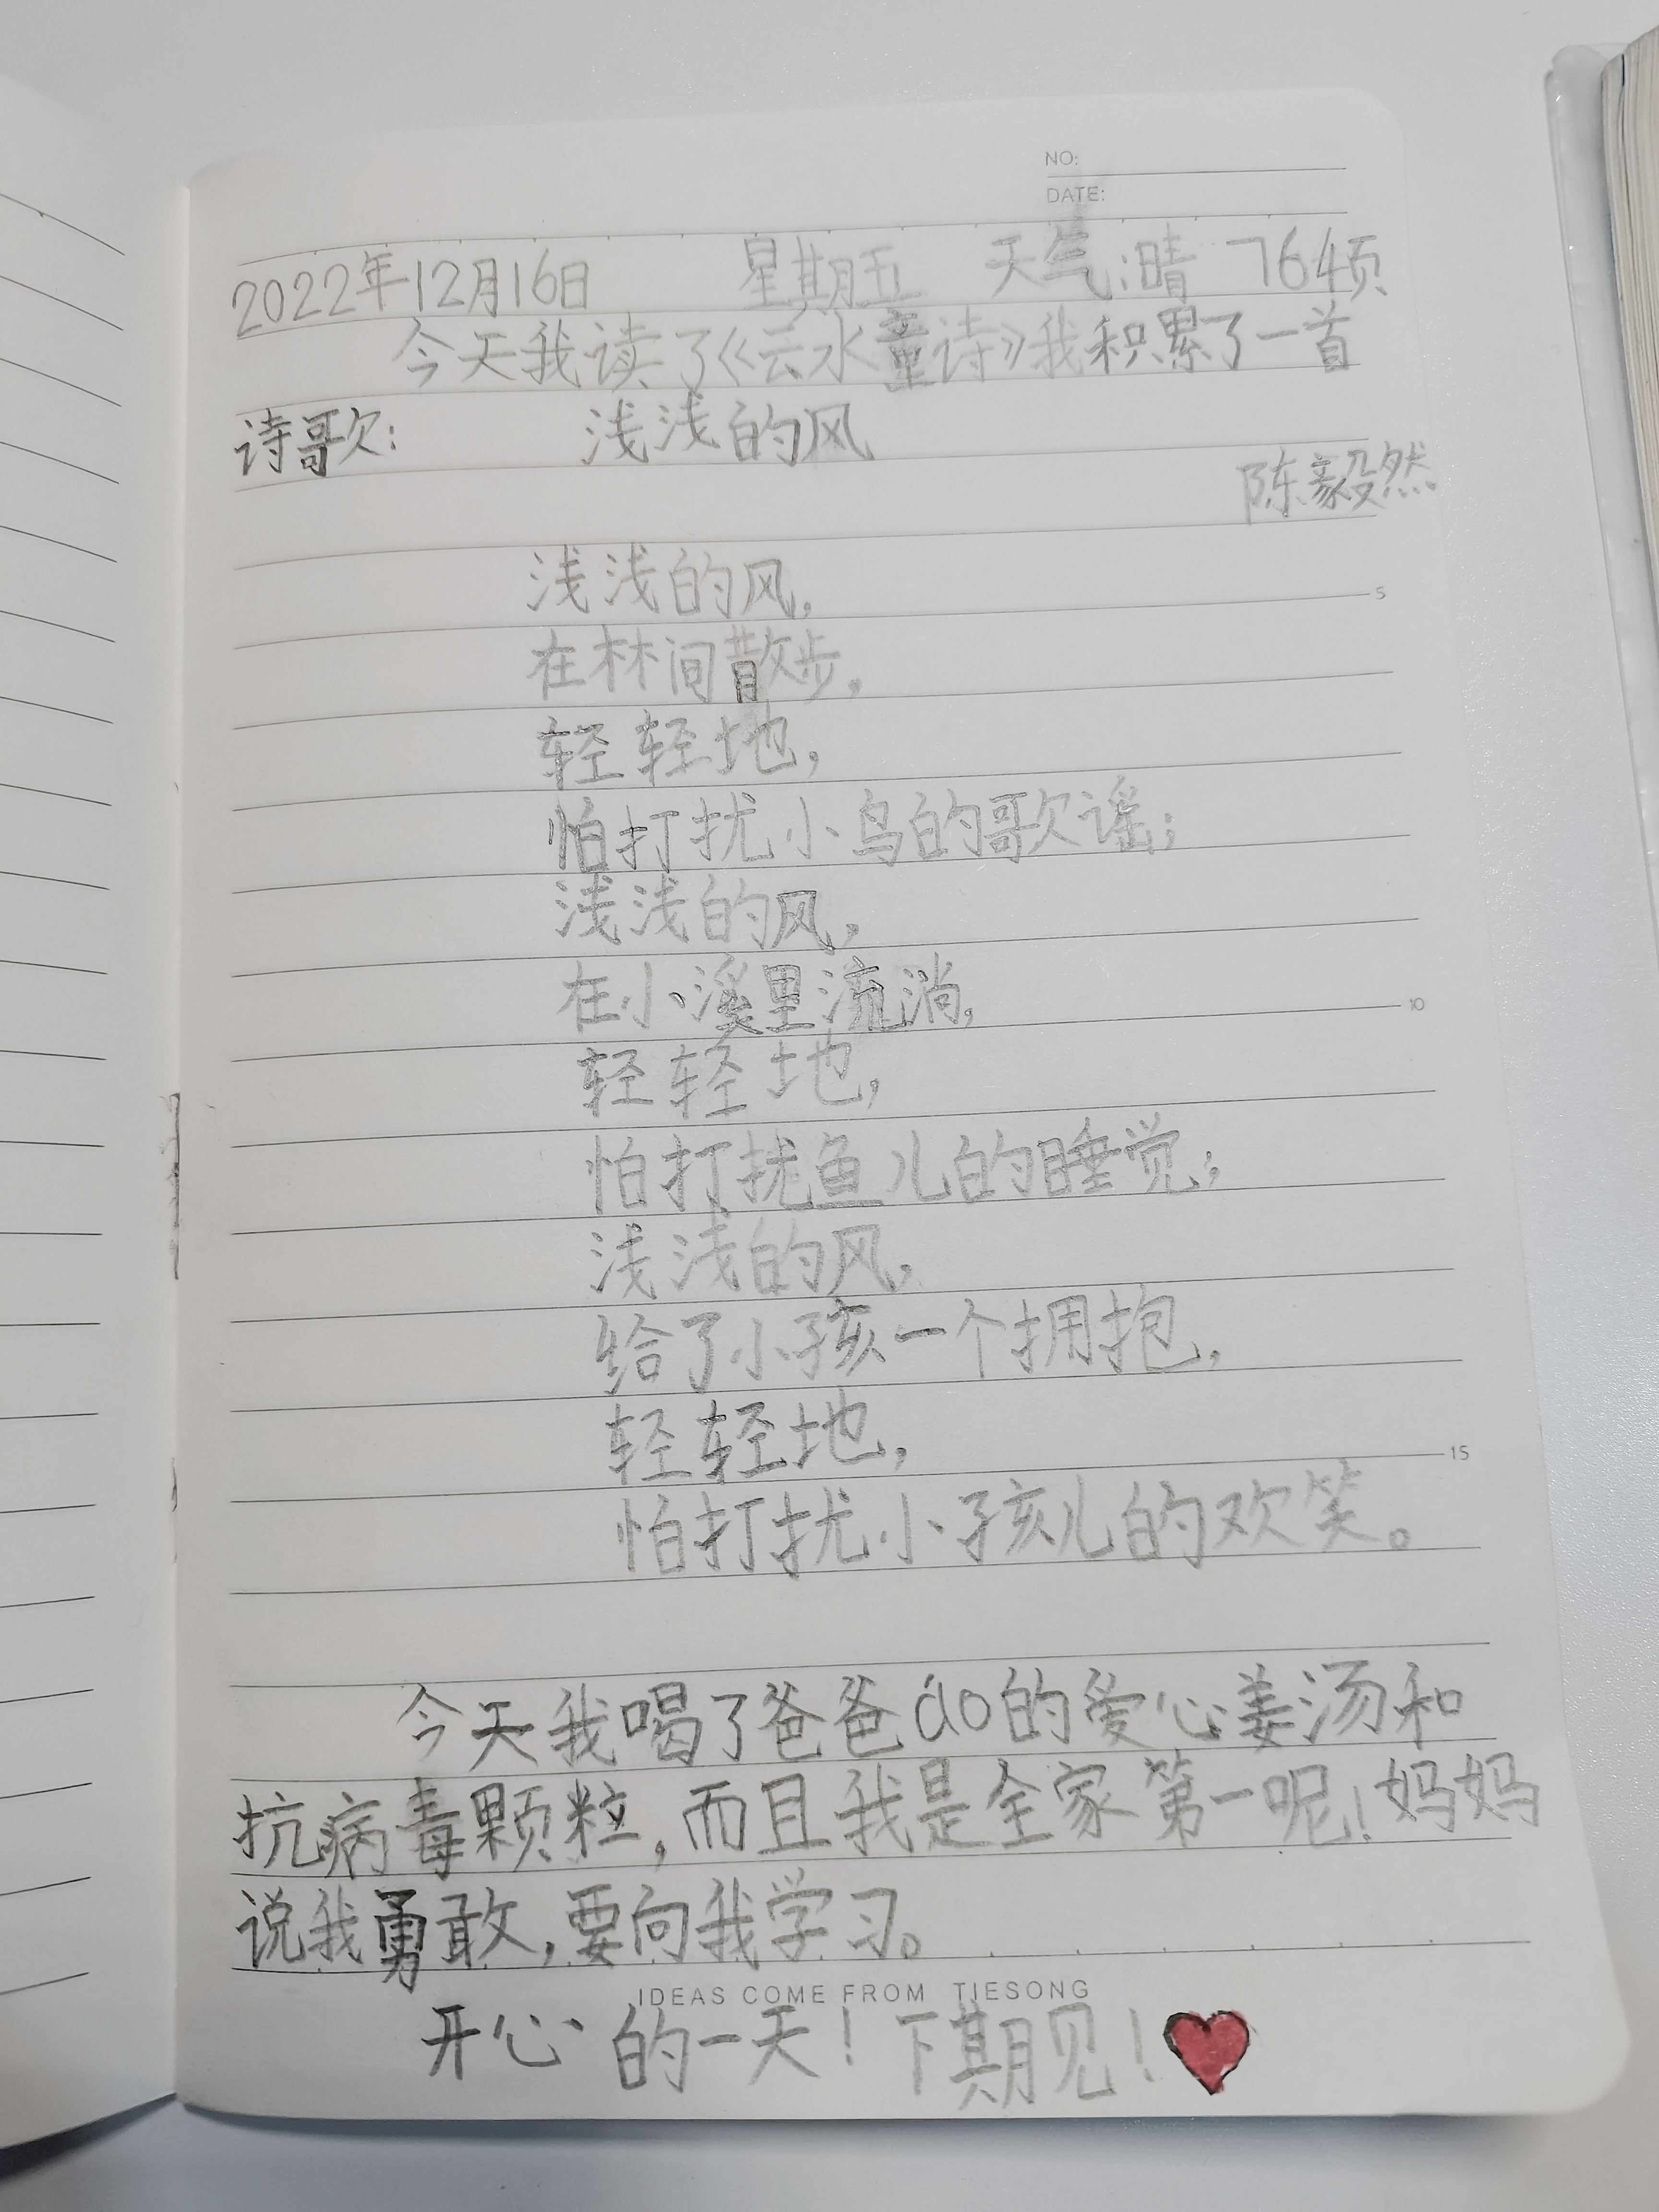 NO:
DATE:
2022年12月16日 星期五 天气:晴 764页
今天我读了《云水童诗》我积累了一首
诗歌: 浅浅的风
陈毅然
浅浅的风,
在林间散步,
轻轻地,
怕打扰小鸟的歌谣;
浅浅的风,
在小溪里流淌,
轻轻地,
怕打扰鱼儿的睡觉;
浅浅的风,
给了小孩一个拥抱,
轻轻地,
怕打扰小孩儿的欢笑。
今天我喝了爸爸áo的爱心姜汤和
抗病毒颗粒,而且我是全家第一呢!妈妈
说我勇敢,要向我学习。
IDEAS COME FROM TIESONG
开心的一天!下期见!
5
10
15